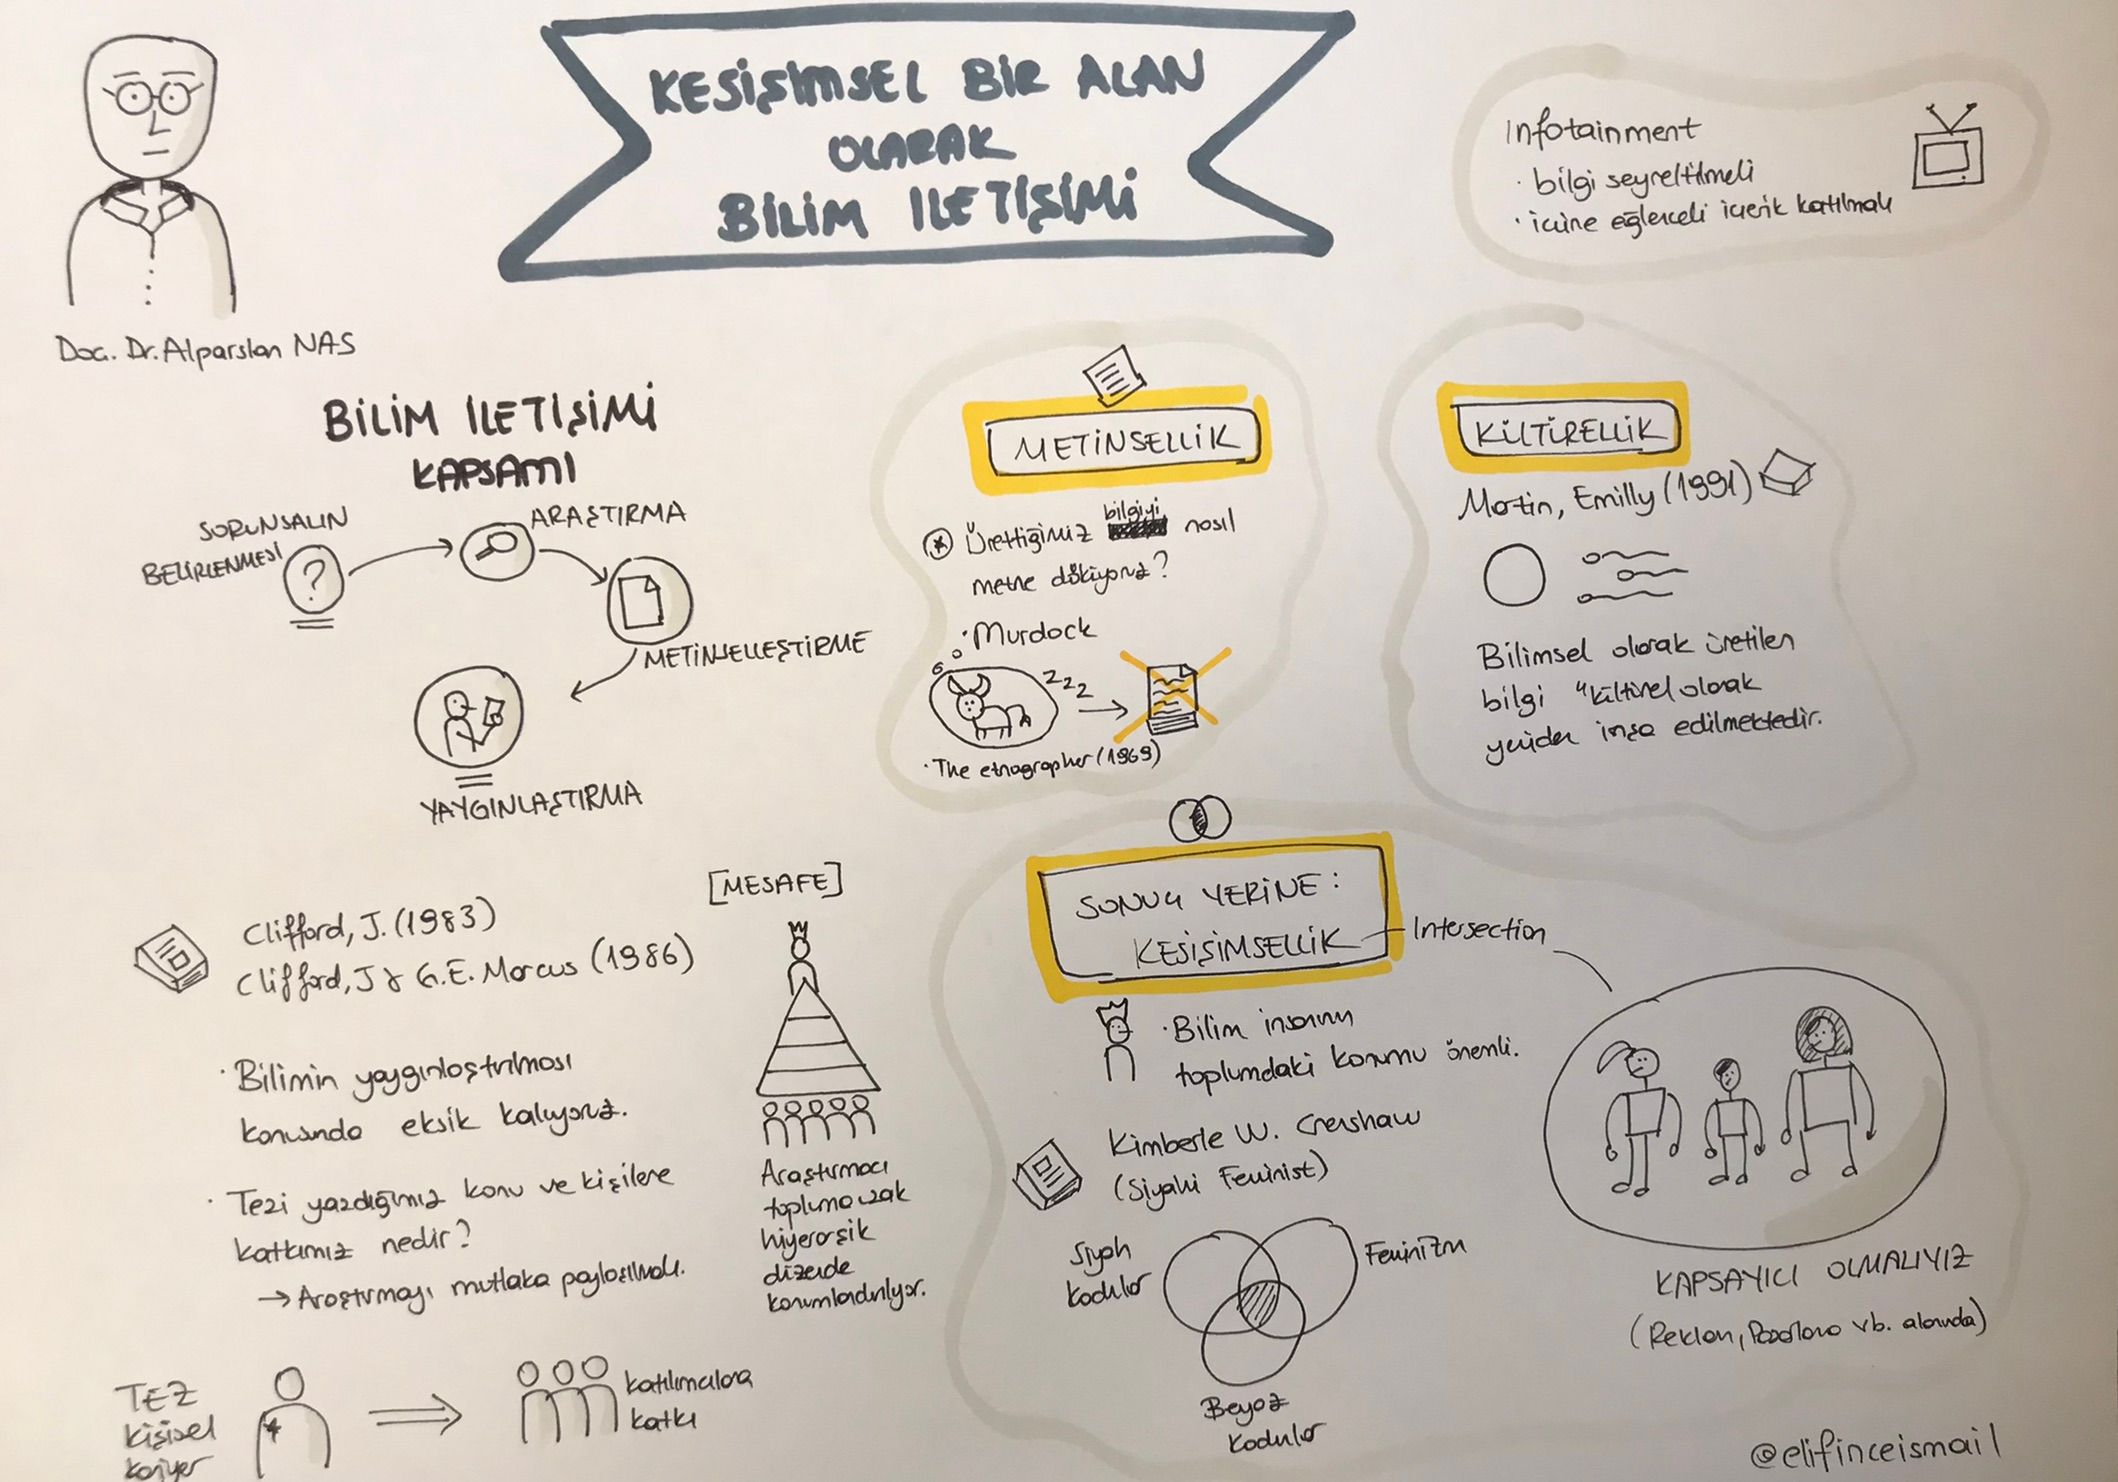 KESİŞİMSEL BİR ALAN
OLARAK
BİLİM İLETİŞİMİ
Doç. Dr. Alparslan NAS
Infotainment
· bilgi seyreltilmeli
· içine eğlenceli içerik katılmalı
BİLİM İLETİŞİMİ
KAPSAMI
SORUNSALIN
BELİRLENMESİ
?
ARAŞTIRMA
METİNSELLEŞTİRME
YAYGINLAŞTIRMA
METİNSELLİK
Ürettiğimiz bilgiyi nasıl
metne döküyoruz?
· Murdock
zzz
· The etnographer (1969)
KÜLTÜRELLİK
Martin, Emilly (1991)
Bilimsel olarak üretilen
bilgi "kültürel olarak
yeniden inşa edilmektedir.
Clifford, J. (1983)
Clifford, J & G.E. Marcus (1986)
· Bilimin yaygınlaştırılması
konusunda eksik kalıyoruz.
· Tezi yazdığımız konu ve kişilere
katkımız nedir?
→ Araştırmayı mutlaka paylaşılmalı.
[MESAFE]
Araştırmacı
topluma uzak
hiyerarşik
düzende
konumlandırılıyor.
TEZ
kişisel
kariyer
katılımcılara
katkı
SONUÇ YERİNE:
KESİŞİMSELLİK
Intersection
· Bilim insanının
toplumdaki konumu önemli.
Kimberle W. Crenshaw
(Siyahi Feminist)
Siyah
kadınlar
Feminizm
Beyaz
kadınlar
KAPSAYICI OLMALIYIZ
(Reklam, Pazarlama vb. alanında)
@elifinceismail